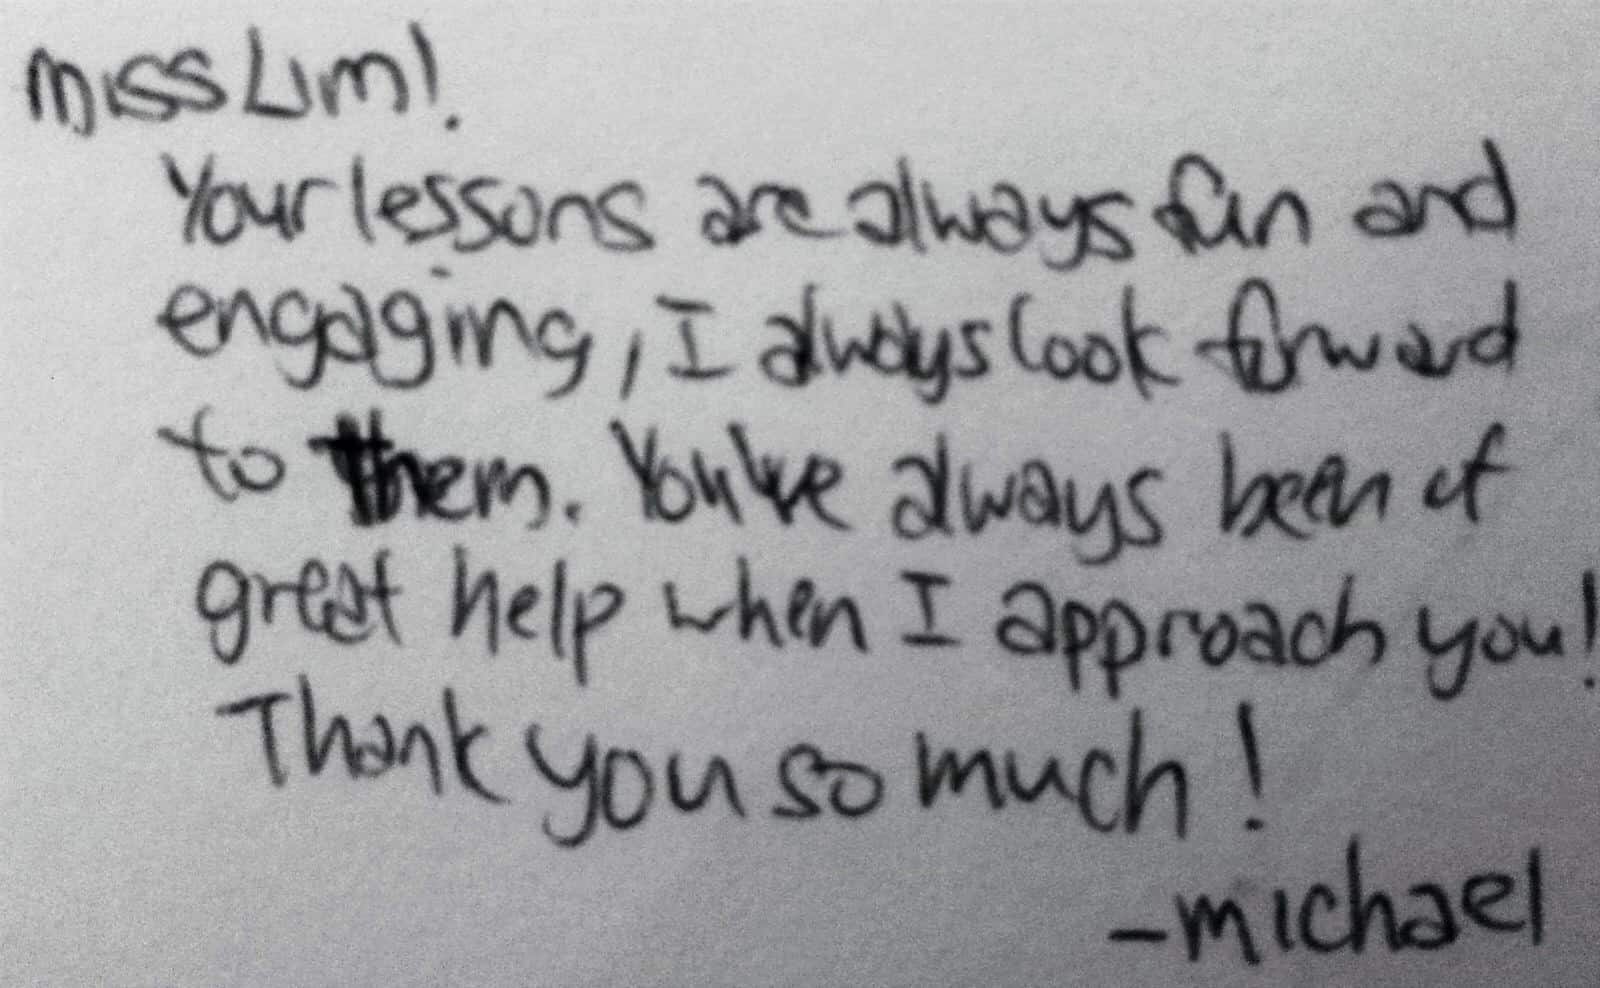 Miss Lim!
Your lessons are always fun and
engaging, I always look forward
to them. You've always been of
great help when I approach you!
Thank you so much!
-Michael